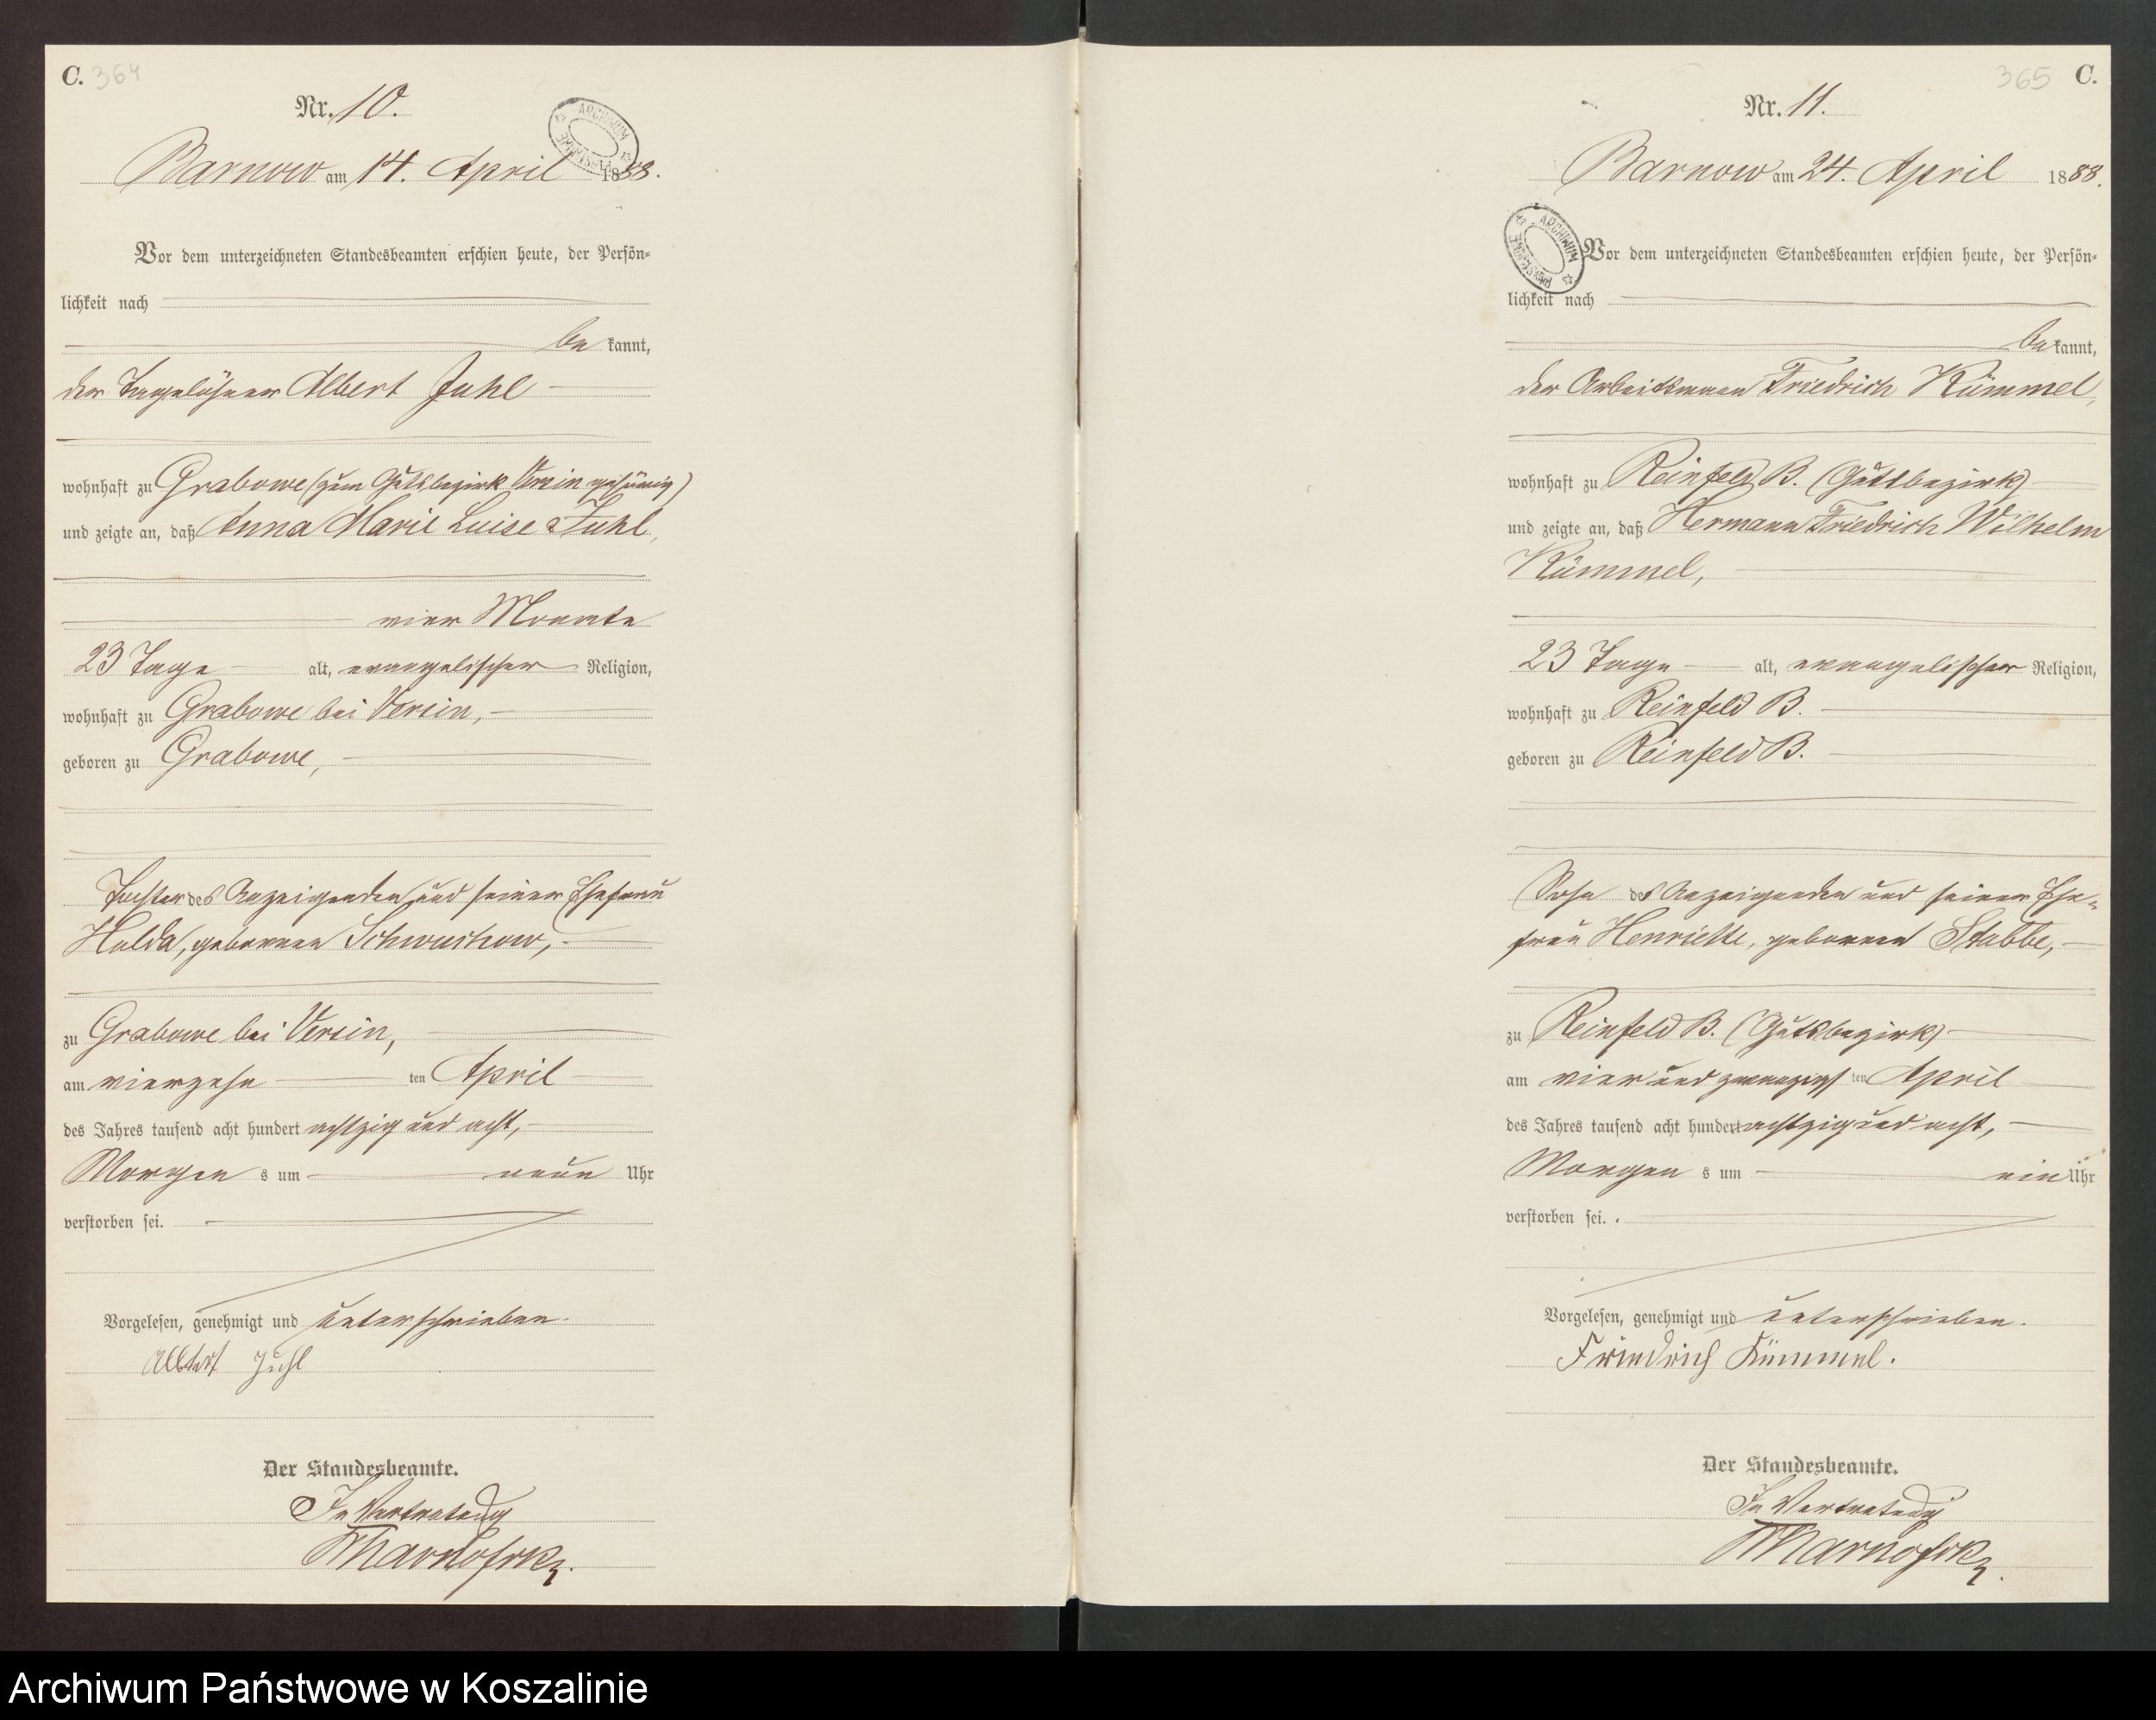 C. 364
Nr. 10.
ARCHIWUM
Barnow am 14. April 1888.
Vor dem unterzeichneten Standesbeamten erschien heute, der Persön-
lichkeit nach
be kannt,
der Tagelöhner Albert Juhl
wohnhaft zu Grabowe (zum Gutsbezirk Versin gehörig)
und zeigte an, daß Anna Marie Luise Juhl,
vier Monate
23 Tage alt, evangelischer Religion,
wohnhaft zu Grabowe bei Versin,
geboren zu Grabowe,
Tochter des Anzeigenden und seiner Ehefrau
Hulda, geborenen Schwuchow,
zu Grabowe bei Versin,
am vierzehn ten April
des Jahres tausend acht hundert achtzig und acht,
Morgen s um neun Uhr
verstorben sei.
Vorgelesen, genehmigt und unterschrieben.
Albert Juhl
Der Standesbeamte.
In Vertretung
365 C.
Nr. 11.
Barnow am 24. April 1888.
ARCHIWUM
Vor dem unterzeichneten Standesbeamten erschien heute, der Persön-
lichkeit nach
be kannt,
der Arbeitsmann Friedrich Kümmel,
wohnhaft zu Reinfeld B. (Gutsbezirk)
und zeigte an, daß Hermann Friedrich Wilhelm
Kümmel,
23 Tage alt, evangelischer Religion,
wohnhaft zu Reinfeld B.
geboren zu Reinfeld B.
Sohn des Anzeigenden und seiner Ehe-
frau Henriette, geborenen Stubbe,
zu Reinfeld B. (Gutsbezirk)
am vier und zwanzigs ten April
des Jahres tausend acht hundert achtzig und acht,
Morgen s um ein Uhr
verstorben sei.
Vorgelesen, genehmigt und unterschrieben.
Friedrich Kümmel.
Der Standesbeamte.
In Vertretung
Archiwum Państwowe w Koszalinie